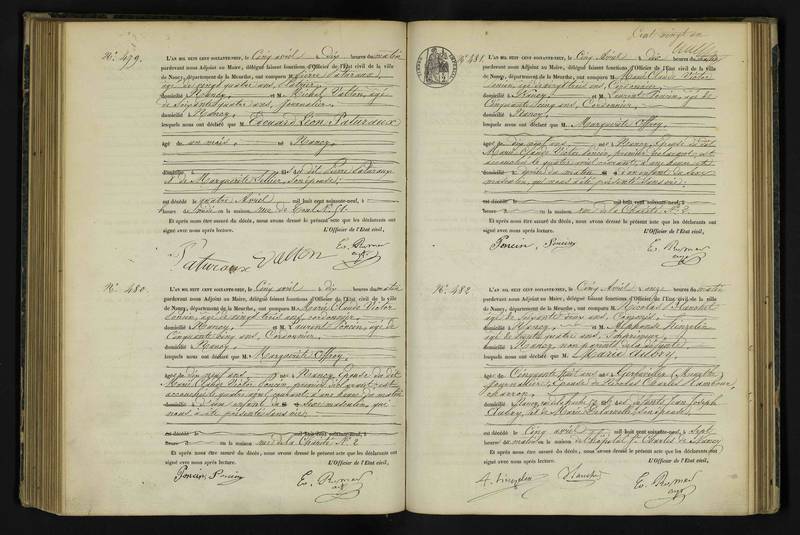 Nº 479.
L'AN MIL HUIT CENT SOIXANTE-NEUF, le Cinq avril à dix heures du matin
pardevant nous Adjoint au Maire, délégué faisant fonctions d'Officier de l'État civil de la ville
de Nancy, département de la Meurthe, ont comparu M. Pierre Patureaux,
âgé de vingt quatre ans,
domicilié à Nancy, et M. Michel Valton, âgé
de soixante ans, journalier,
domicilié à Nancy,
lesquels nous ont déclaré que M. Edouard Léon Patureaux
âgé de un mois, né à Nancy,
domicilié à fils du dit Pierre Patureaux
et de Marguerite son épouse;
est décédé le quatre Avril mil huit cent soixante-neuf, à
heures du en la maison rue de Nº 51.
Et après nous être assuré du décès, nous avons dressé le présent acte que les déclarants ont
signé avec nous après lecture. L'Officier de l'État civil,
Patureaux Valton
Nº 480.
L'AN MIL HUIT CENT SOIXANTE-NEUF, le Cinq avril à dix heures du matin
pardevant nous Adjoint au Maire, délégué faisant fonctions d'Officier de l'État civil de la ville
de Nancy, département de la Meurthe, ont comparu M. Marie Claude Victor
Poncin, âgé de vingt trois ans, cordonnier,
domicilié à Nancy, et M. Laurent Poncin, âgé de
Cinquante cinq ans, Cordonnier,
domicilié à Nancy,
lesquels nous ont déclaré que M. Marguerite
âgée de dix neuf ans, née à Nancy, Epouse du dit
Marie Claude Victor Poncin, premier déclarant, est
accouchée le quatre avril courant, à une heure du matin
d'un enfant du sexe masculin, qui
nous a été présenté sans vie;
est décédé mil huit cent soixante-neuf, à
heures en la maison rue de la Charité Nº 2
Et après nous être assuré du décès, nous avons dressé le présent acte que les déclarants ont
signé avec nous après lecture. L'Officier de l'État civil,
Poncin, Poncin
Cent vingt un
Nº 481
L'AN MIL HUIT CENT SOIXANTE-NEUF, le Cinq Avril à dix heures du matin
pardevant nous Adjoint au Maire, délégué faisant fonctions d'Officier de l'État civil de la ville
de Nancy, département de la Meurthe, ont comparu M. Marie Claude Victor
Poncin, âgé de vingt trois ans, Cordonnier,
domicilié à Nancy, et M. Laurent Poncin, âgé de
Cinquante cinq ans, Cordonnier,
domicilié à Nancy,
lesquels nous ont déclaré que M. Marguerite
âgée de dix neuf ans, née à Nancy, Epouse du dit
Marie Claude Victor Poncin, premier déclarant, est
accouchée le quatre avril courant, à une heure et
du matin d'un enfant du sexe
masculin, qui nous a été présenté sans vie;
mil huit cent soixante-neuf, à
heures en la maison rue de la Charité Nº 2
Et après nous être assuré du décès, nous avons dressé le présent acte que les déclarants ont
signé avec nous après lecture. L'Officier de l'État civil,
Poncin, Poncin
Nº 482
L'AN MIL HUIT CENT SOIXANTE-NEUF, le Cinq Avril à onze heures du matin
pardevant nous Adjoint au Maire, délégué faisant fonctions d'Officier de l'État civil de la ville
de Nancy, département de la Meurthe, ont comparu M. Nicolas
âgé de soixante ans,
domicilié à Nancy, et M. Alphonse
âgé de trente quatre ans,
domicilié à Nancy, non parent de la défunte,
lesquels nous ont déclaré que M. Marie Aubry,
âgée de Cinquante ans, née à Gerbéviller (Meurthe)
journalière, Epouse de Nicolas Charles
charron,
domiciliée à Nancy, fille de Jean Joseph
Aubry, et de Marie son épouse;
est décédée le Cinq avril mil huit cent soixante-neuf, à sept
heures du matin en la maison de l'hôpital St Charles de Nancy
Et après nous être assuré du décès, nous avons dressé le présent acte que les déclarants ont
signé avec nous après lecture. L'Officier de l'État civil,